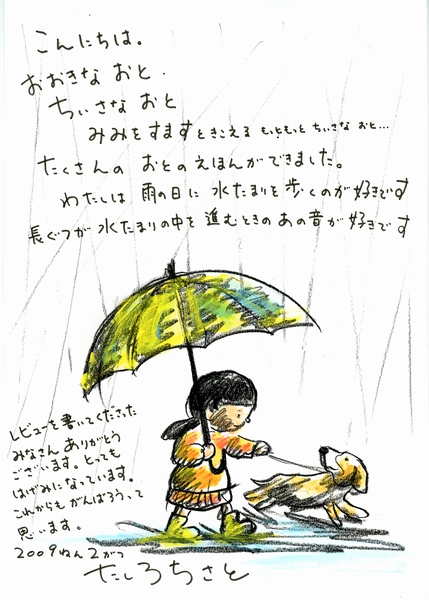 こんにちは。
おおきな おと．
ちいさな おと
みみをすますときこえる もっともっと ちいさな おと…
たくさんの おとのえほんができました。
わたしは 雨の日に 水たまりを歩くのが好きです
長ぐつが水たまりの中を進むときのあの音が好きです
レビューを書いてくださった
みなさん ありがとう
ございます。とっても
はげみになっています。
これからもがんばろうって
思います。
2009ねん2がつ
たしろちさと